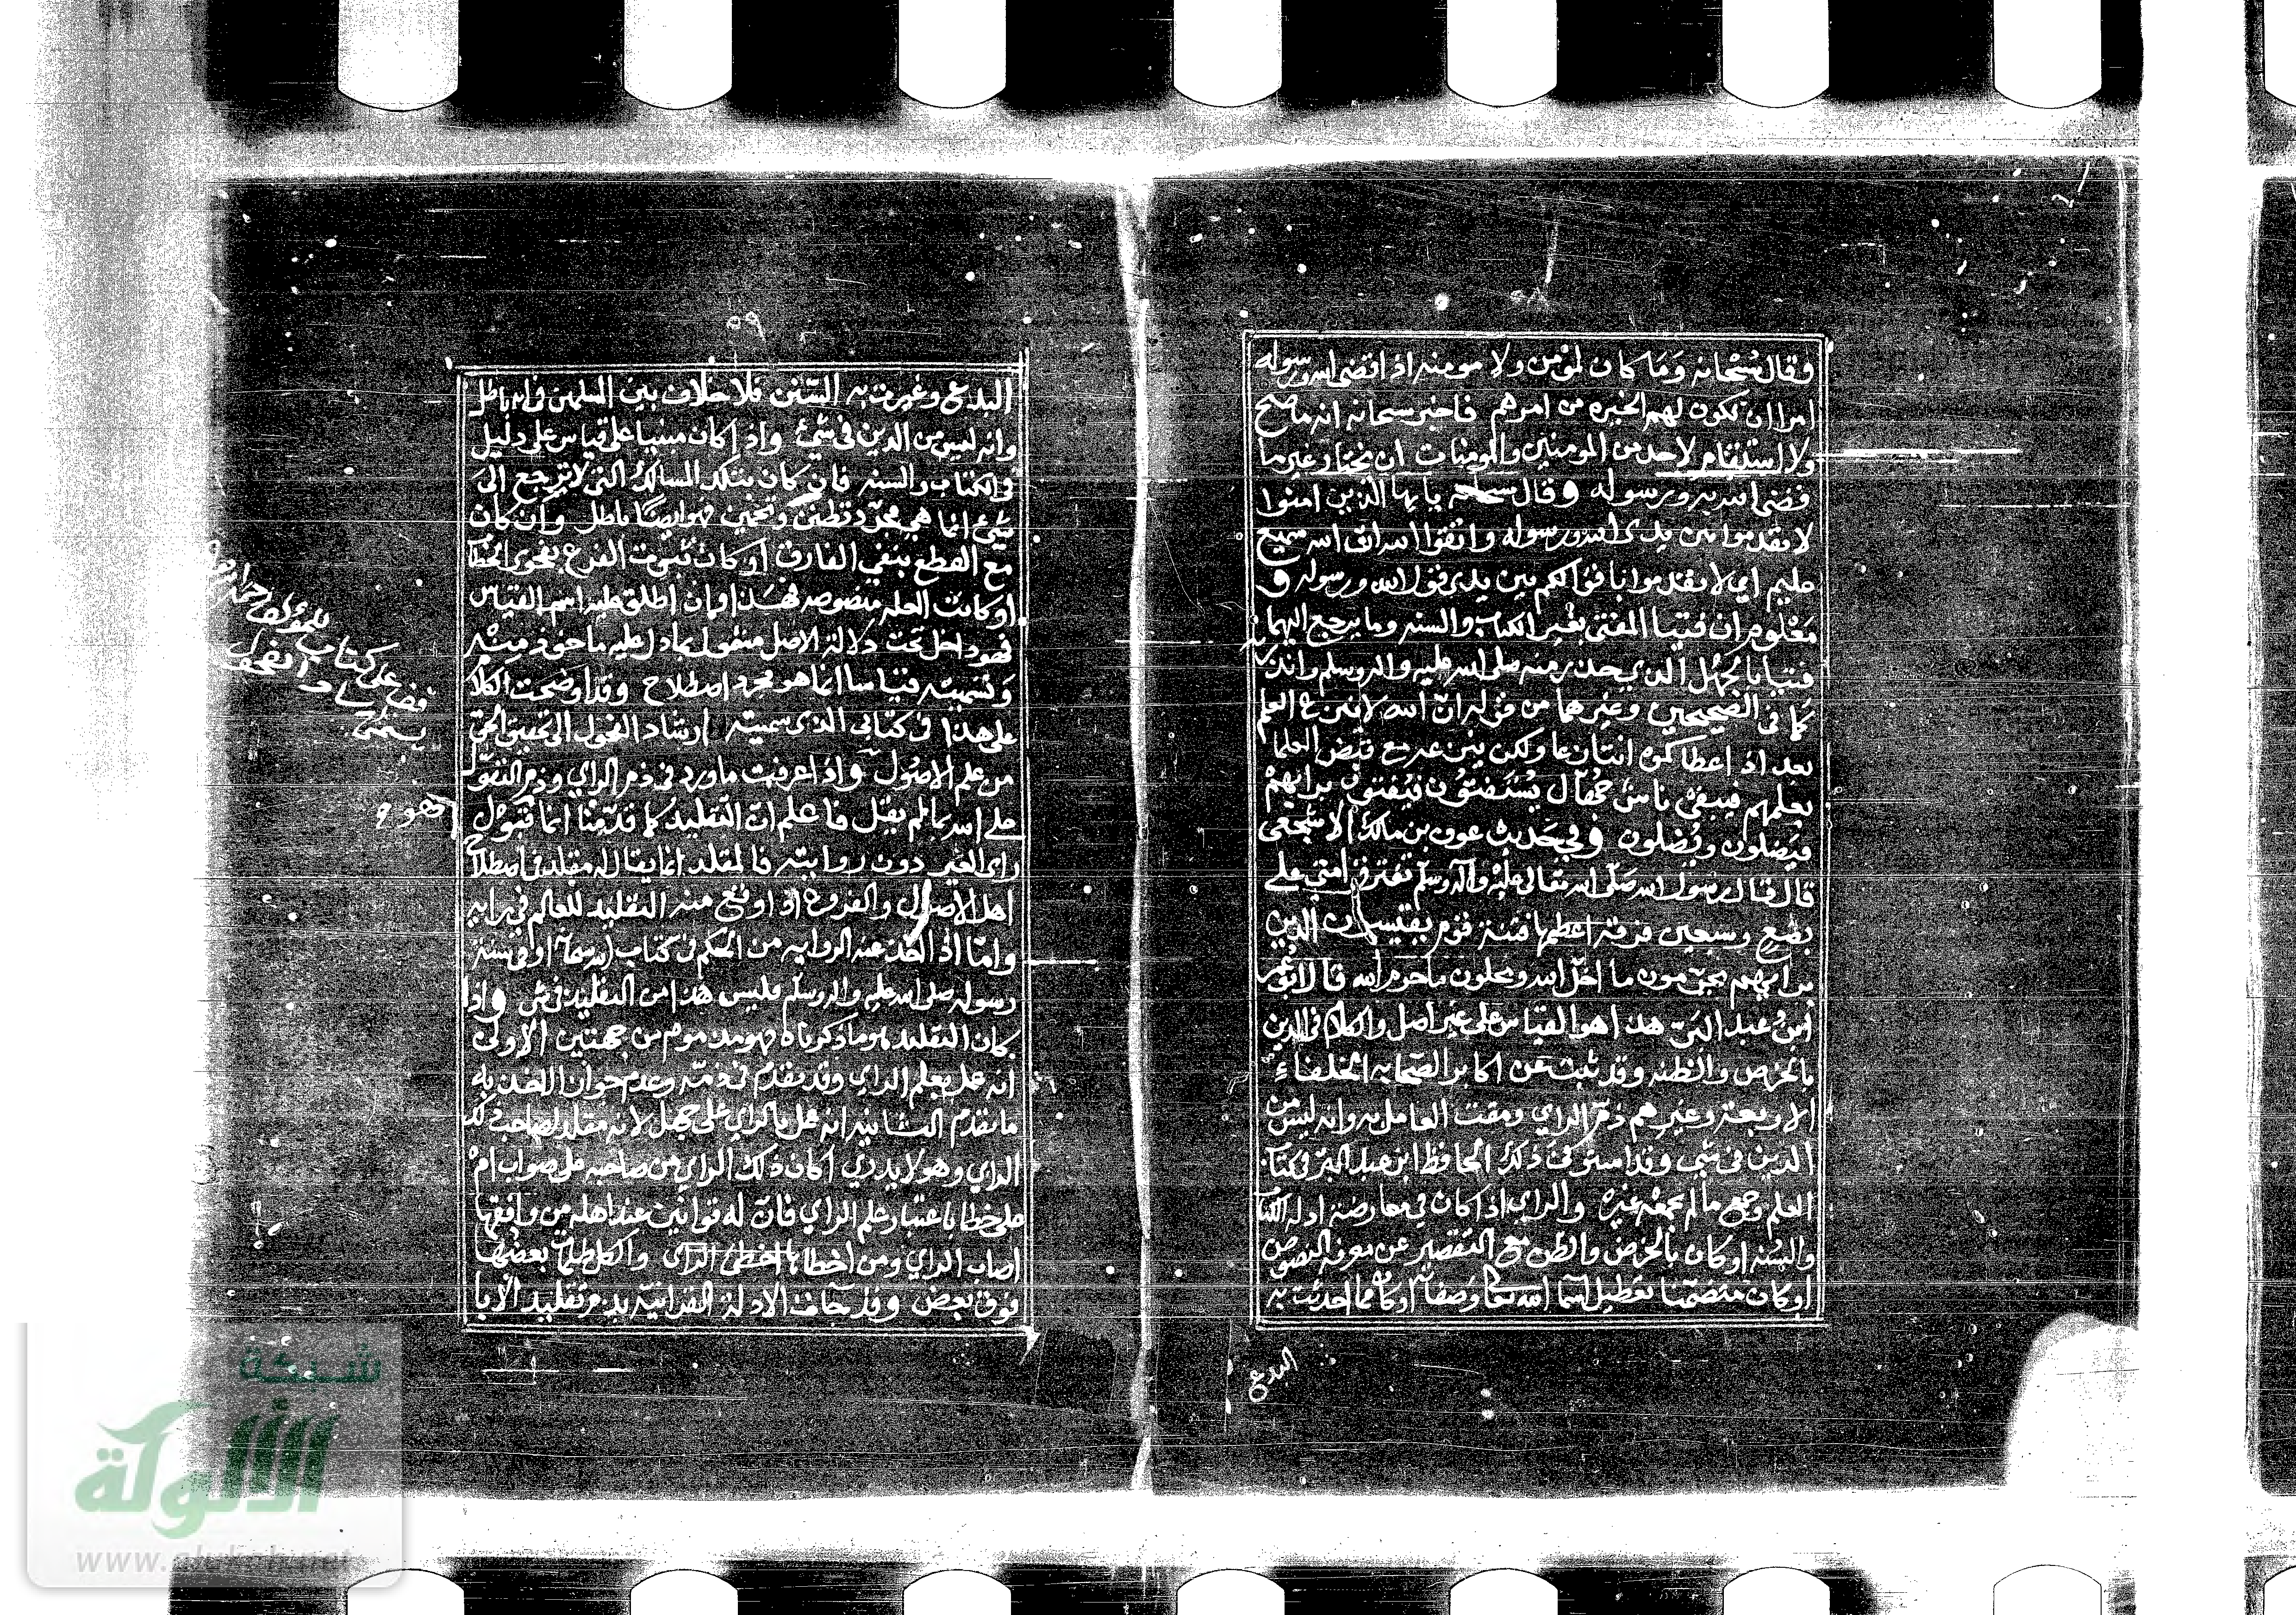 وقال سُبْحَانه وَمَا كان لمؤمن ولا مومنه اذا قضى الله ورسوله
امرا ان تكون لهم الخيره من امرهم فاخبر سبحانه انه ما صح
ولا استقام لاحد من المومنين والمومنات ان يختار غير ما
قضى الله به ورسوله وقال سبحانه يا يها الذين امنوا
لا تقدموا بين يدي الله ورسوله واتقوا الله ان الله سميع
عليم اي لا تقدموا باقوالكم بين يدي قول الله ورسوله و
مَعْلوم ان فتيا المفتي بغير الكتاب والسنه وما يرجع اليهما
فتيا بالجهل الذي حذر منه صلى الله عليه واله وسلم وانذر
كما في الصحيحين وغيرهما من قوله ان الله لا ينزع العلم
بعد اذ اعطاكموه انتزاعا ولكن ينزعه مع قبض العلما
بعلمهم فيبقى ناس جُهّال يُسْتَفتَوْن فيُفتون برايهمْ
فيَضلون ويُضلون وفي حَديث عوف بن مالك الاشجعي
قال قال رسول الله صَلّى الله تعالى عليْه وآله وسلّم تفترق امتي على
بضع وسبعين فرقة اعظمها فتنة قوم يقيسون الدين
برايهم يحرّمون ما احَلّ الله ويحلون ما حرم الله قال ابو عمر
ابنُ عبد البَرّ هذا هو القياس على غير اصل والكلام في الدين
بالخرص والظنه وقد ثبت عن اكابر الصّحابه الخلفاءِ
الاربعة وغيرهم ذمّ الراي ومقت العامل به وانه ليس من
الدين في شي وقد استوفى ذلك الحافظ ابن عبد البر في كتاب
العلم وجمع ما لم يجمعْه غيره والراي اذا كان في معارضة ادله الكتاب
والسُنه او كان بالخرص والظن مع التقصير عن معرفة النصوص
او كان متضمّنا تعطيل اسما الله تعالى وصفاته او كان مما احدثت به
البدع
البدع وغيرت به السّنن فلا خلاف بين المسلمين في انه باطل
وانه ليس من الدين في شيء واذا كان مبنيا على قياس على دليل
في الكتاب والسنه فان كان بتلك المسالك التي لا ترجع الى
شيء انما هي مجرّد تظنن وتخمين فهو ايضًا باطل وان كان
مع القطع بنفي الفارق او كان ثبوت الفرع بفحوى الخطاب
او كانت العله منصوصه فهذا وان اطلق عليه اسم القياس
فهو داخل تحت دلالة الاصل مشمول بما دل عليه ماخوذ منه
وتسميته قياسا انما هو مجرد اصطلاح وقد اوضحت الكلام
على هذا في كتابي الذي سميته ارشاد الفحول الى تحقيق الحق
من علم الاصُول واذا عرفت ما ورد في ذم الراي وذم التقوّل
على الله بما لم يقل فاعلم انّ التقليد كما قدّمنا انما قبُول
راي الغير دون روايته فالمقلد انما يقال له مقلد في اصطلاح
اهل الاصول والفروع اذا وقع منه التقليد للعالم في رايه
وامّا اذا اخذ عنه الروايه من الحكم في كتاب الله تعالى او في سنة
رسوله صلى الله عليه واله وسلم فليس هذا من التقليد في شي واذا
كان التقليد هو ما ذكرناه فهو مذموم من جهتين الاولى
انه عمل بعلم الراي وقد تقدم في ذمّه وعدم جواز الاخذ به
ما تقدم الثانيه انه عمل بالراي على جهل لانه مقلد لصاحب ذلك
الراي وهو لا يدري اكان ذلك الراي من صاحبه على صواب امْ
على خطا باعتبار علم الراي فانّ له قوانين عند اهله من وافقها
اصاب الراي ومن اخطاها اخطى الراى والكل ظلمات بعضها
فوق بعض وقد جآءت الادلة القرانيّة بذم تقليد الابا
قف على كتاب للمؤلف